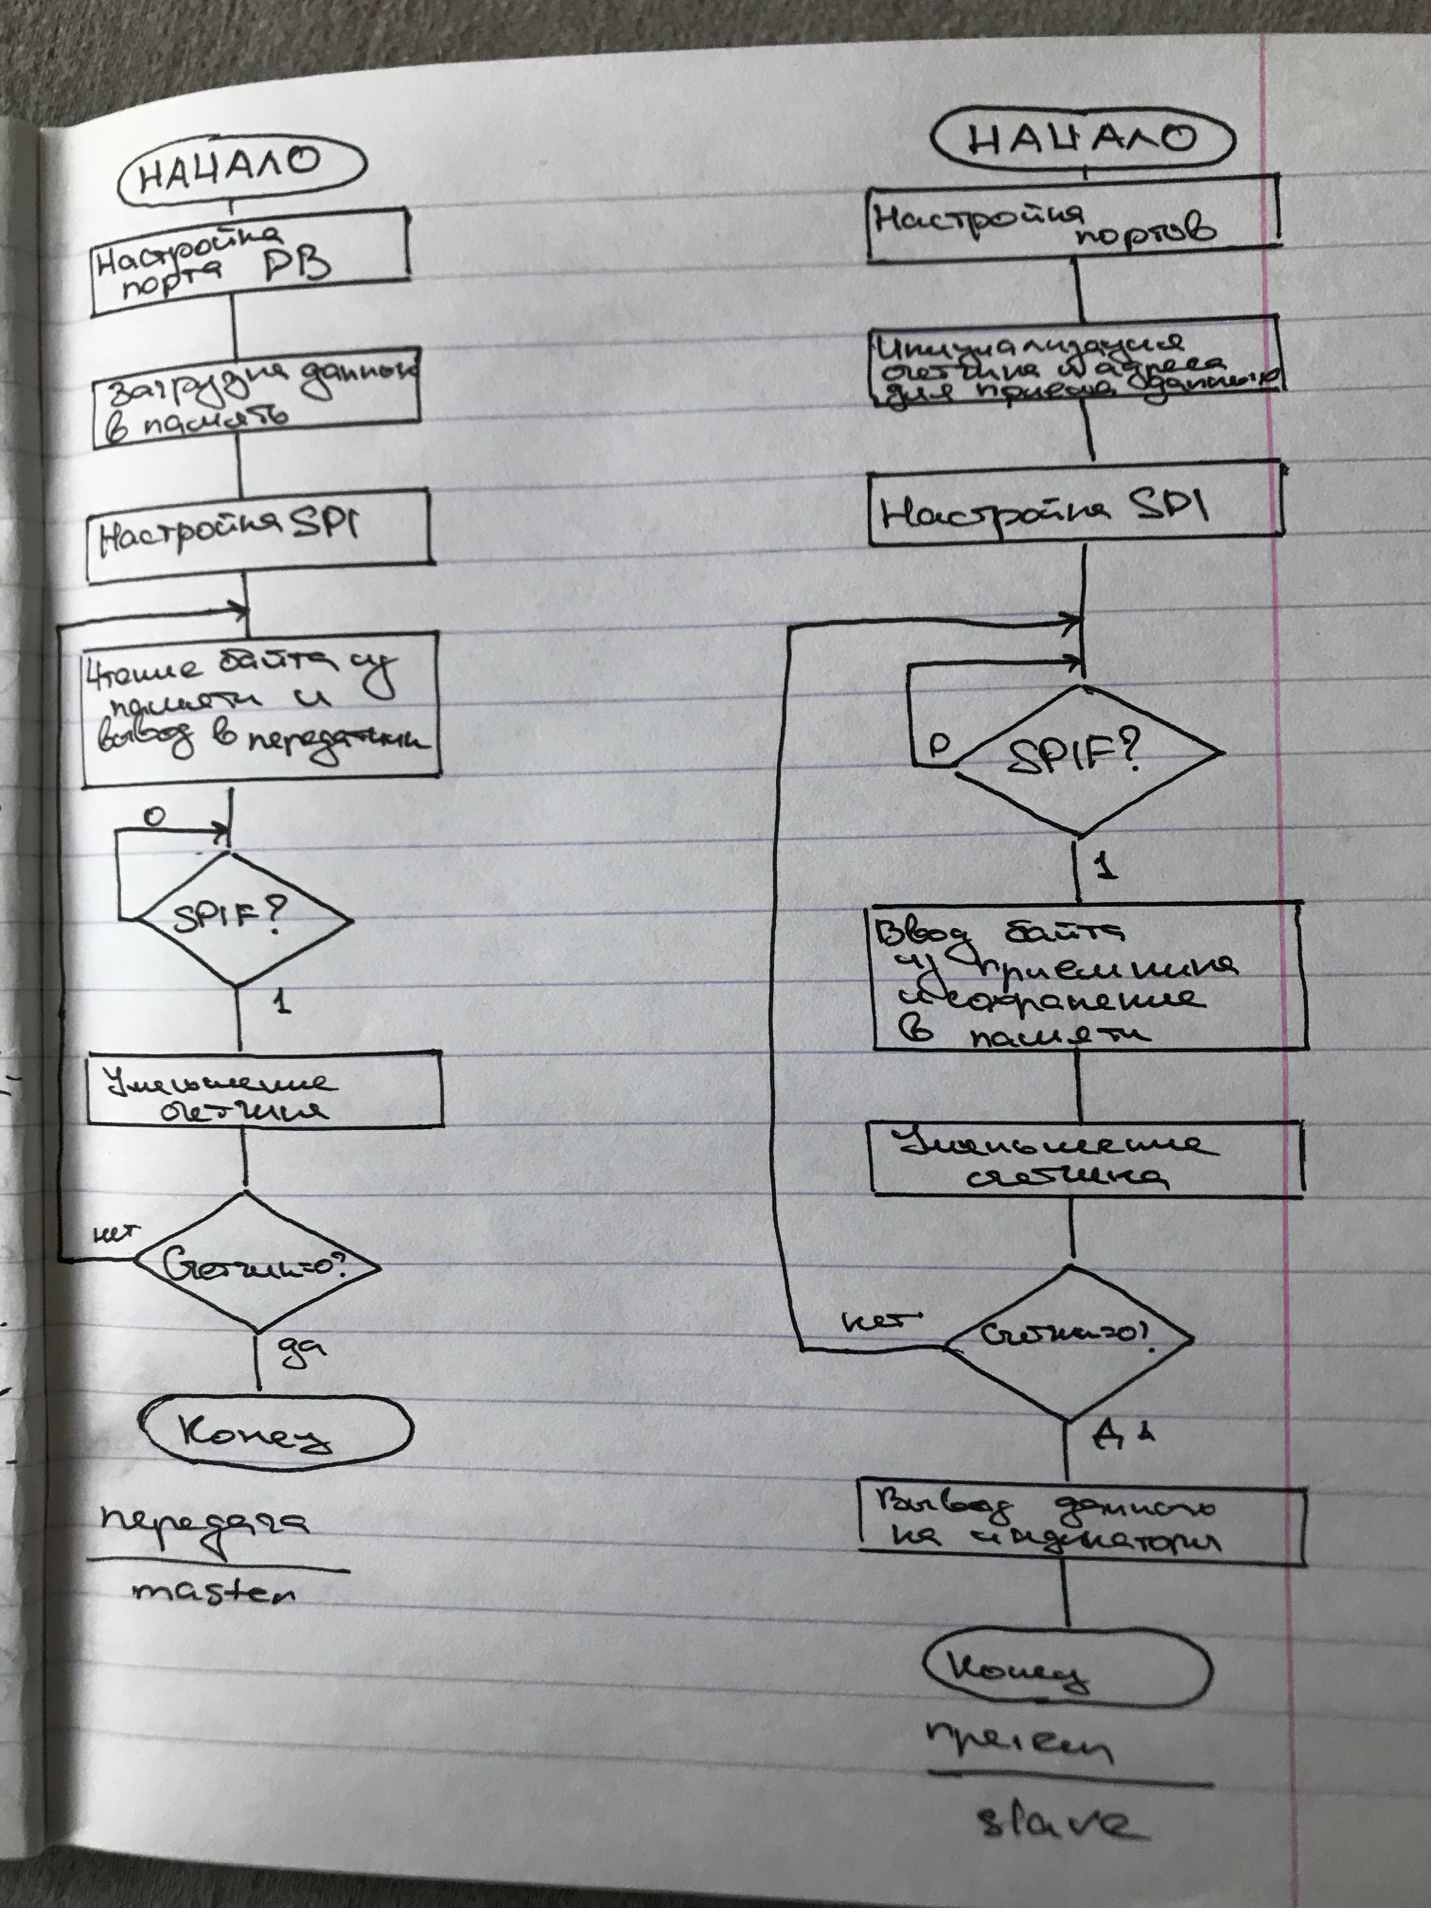 НАЧАЛО
Настройка
порта PB
Загрузка данных
в память
Настройка SPI
Чтение байта из
памяти и
вывод в передатчик
0
SPIF?
1
Уменьшение
счетчика
нет
Счетчик=0?
да
Конец
передача
master
НАЧАЛО
Настройка
портов
Инициализация
счетчика и адреса
для приема данных
Настройка SPI
0
SPIF?
1
Ввод байта
из приемника
и сохранение
в памяти
Уменьшение
счетчика
нет
Счетчик=0?
ДА
Вывод данных
на индикаторы
Конец
прием
slave